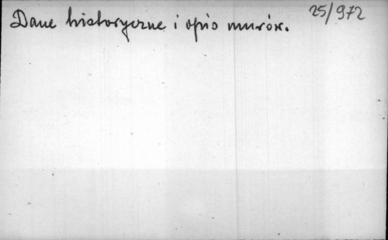 25/972
Dane historyczne i opis murów.